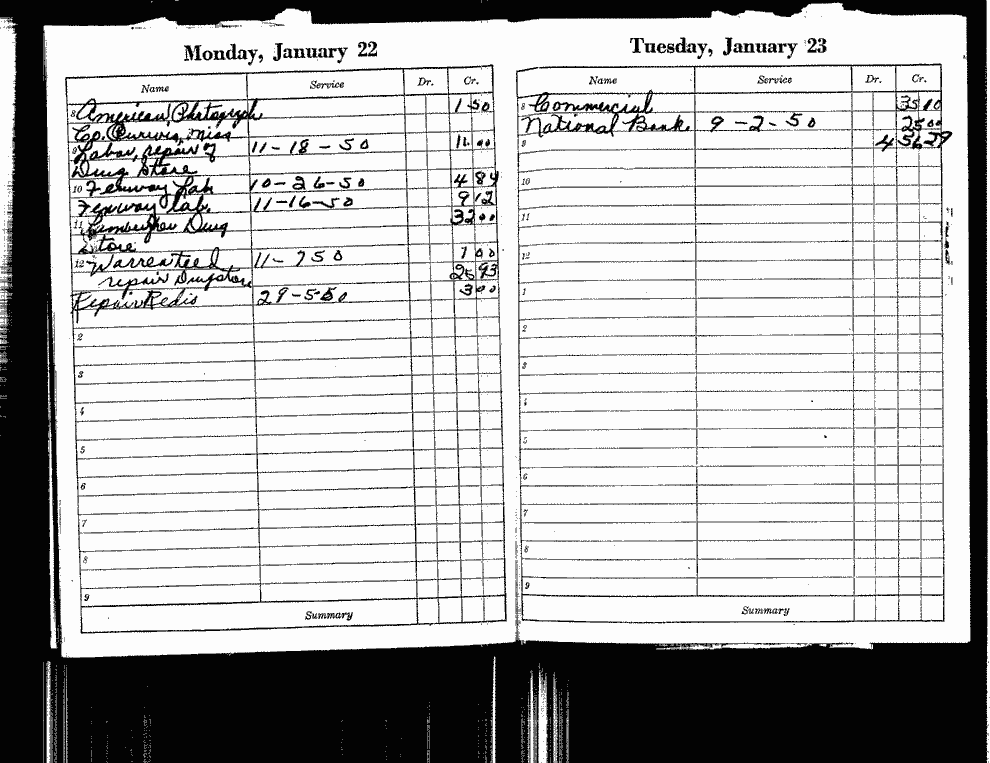 Monday, January 22
Name Service Dr. Cr.
8 American Photograph 1 50
Co. Purvis, Miss
9 Labor, repair of 11-18-50 11 00
Drug Store
10 Fenway Lab 10-26-50 4 84
Fenway Lab. 11-16-50 9 12
11 Drug 32 00
Store
12 Warren 11-750 7 00
repair Drugstore 25 93
Repair Redis 29-5-50 3 00
2
3
4
5
6
7
8
9
Summary
Tuesday, January 23
Name Service Dr. Cr.
8 Commercial 35 10
National Bank. 9-2-50 25 00
9 4 56 29
10
11
12
1
2
3
4
5
6
7
8
9
Summary